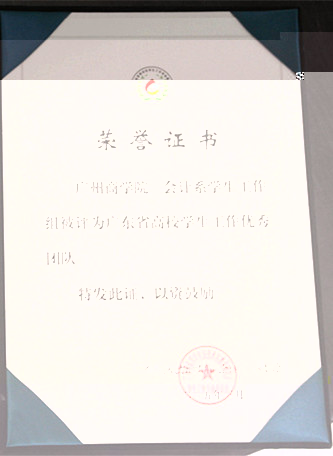 荣誉证书
广州商学院 会计系学生工作
组被评为广东省高校学生工作优秀
团队
特发此证，以资鼓励